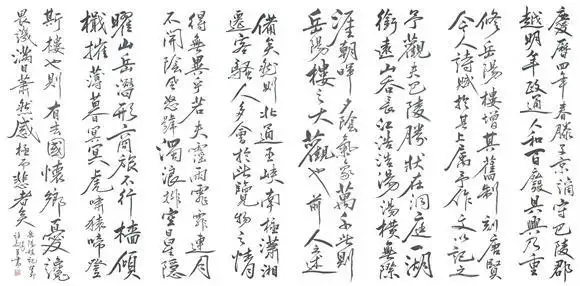 慶曆四年春滕子京謫守巴陵郡
越明年政通人和百廢具興乃重
修岳陽樓增其舊制刻唐賢
今人詩賦於其上属予作文以記之
予觀夫巴陵勝狀在洞庭一湖
銜遠山吞長江浩浩湯湯橫無際
涯朝暉夕陰氣象萬千此則
岳陽樓之大觀也前人之述
備矣然則北通巫峽南極瀟湘
遷客騷人多會於此覽物之情
得無異乎若夫霪雨霏霏連月
不開陰風怒號濁浪排空星隱
曜山岳潛形商旅不行檣傾
檝摧薄暮冥冥虎嘯猿啼登
斯樓也則有去國懷鄉憂讒
畏譏滿目蕭然感極而悲者矣
岳陽樓記節